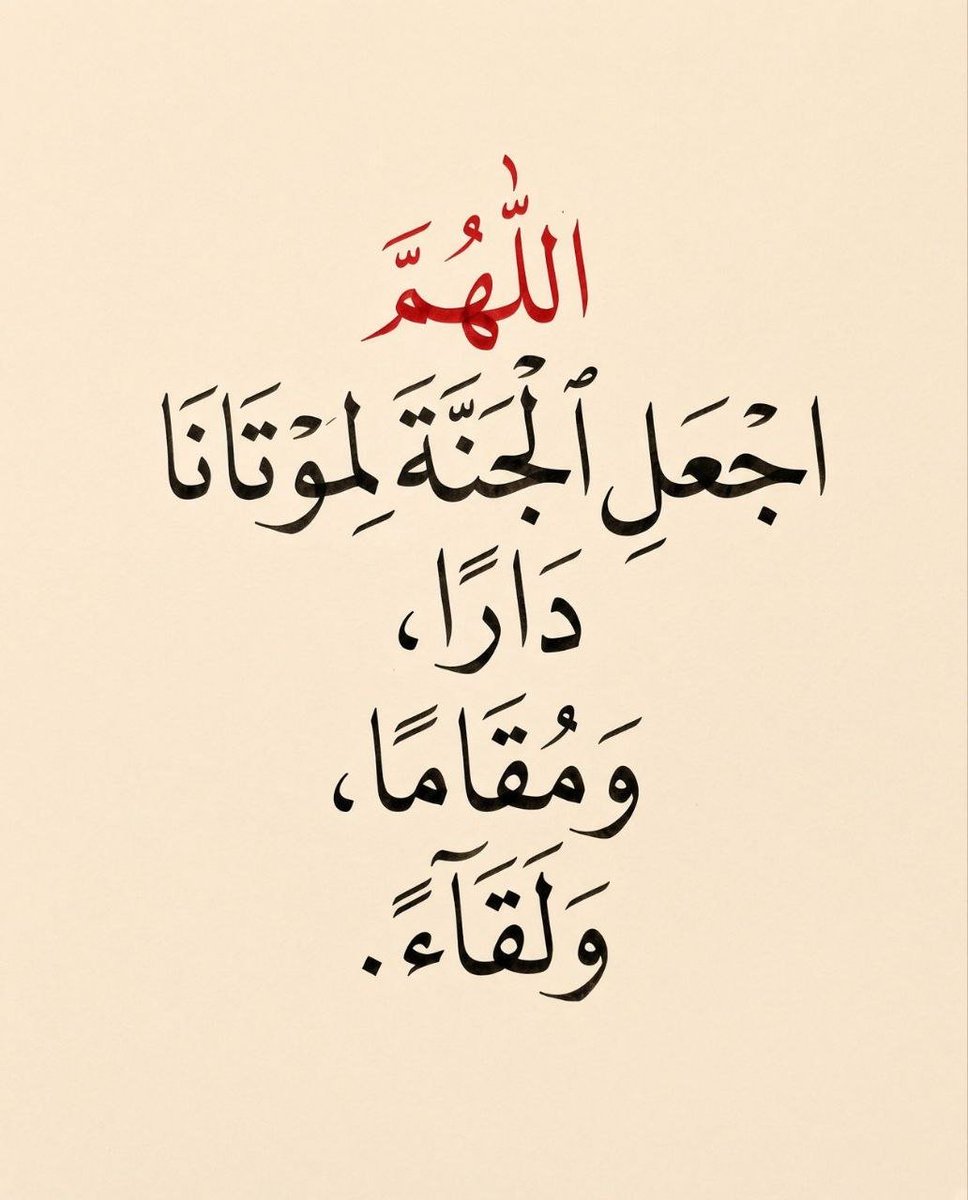 اللّٰهُمَّ
اجْعَلِ ٱلْجَنَّةَ لِمَوْتَانَا
دَارًا،
وَمُقَامًا،
وَلَقَآءً.